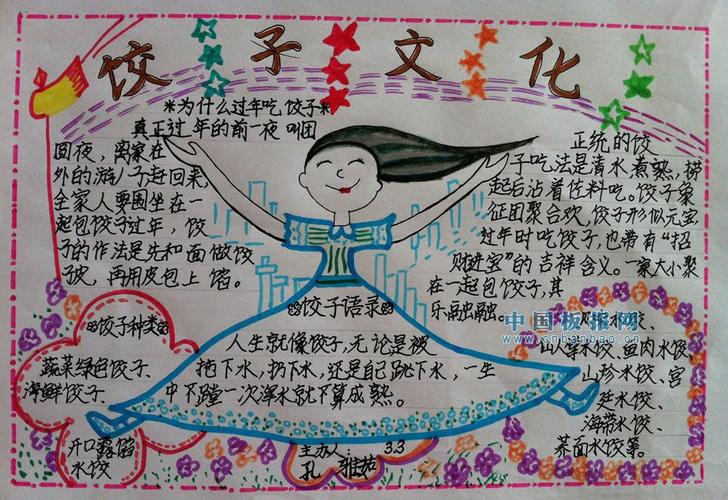 饺子文化
*为什么过年吃饺子*
真正过年的前一夜叫团
圆夜,离家在
外的游/子赶回来,
全家人要围坐在一
起包饺子过年,饺
子的作法是先和面做饺
子皮,再用皮包上馅。
正统的饺
子吃法是清水煮熟,捞
起后沾着佐料吃。饺子象
征团聚合欢,饺子形似元宝
过年时吃饺子,也带有“招
财进宝”的吉祥含义。一家大小聚
在一起包饺子,其
乐融融。
饺子种类
蔬菜绿色饺子.
海鲜饺子.
开口露馅
水饺
饺子语录
人生就像饺子,无论是被
拖下水,扔下水,还是自己跳下水,一生
中不蹚一次浑水就不算成熟。
水饺、
山羊水饺、鱼肉水饺、
山珍水饺、宫
廷水饺、
海带水饺、
荞面水饺等。
主办人: 3.3
孔雅茹
中国板报网
www.cnbanbao.cn